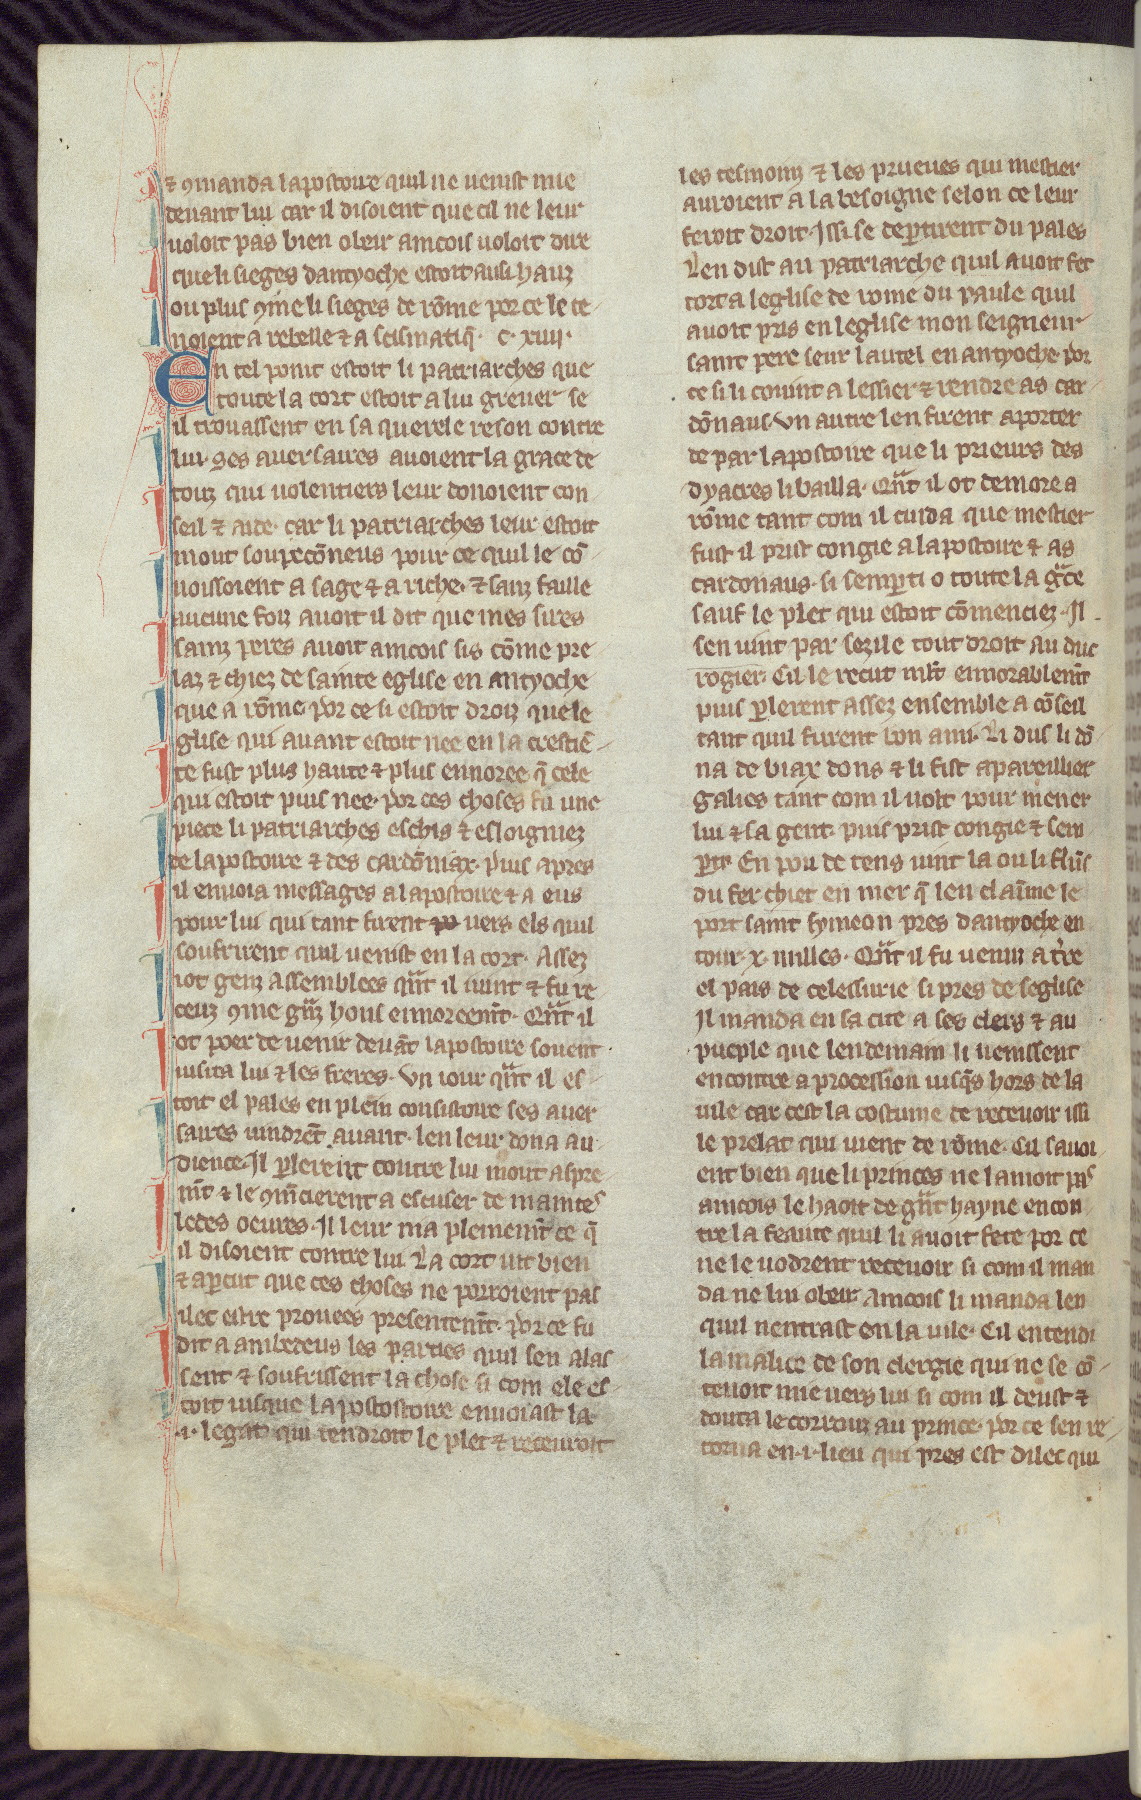 ⁊ ꝯmanda lapostoire quil ne uenist mie
deuant lui car il disoient que cil ne leur
uoloit pas bien obeir aincois uoloit dire
que li sieges dantyoche estoit ausi hauz
ou plus ꝯme li sieges de rōme por ce le te-
noient a rebelle ⁊ a scismatiq̄. c. xiiij.
En tel point estoit li patriarches que
toute la cort estoit a lui greuer se
il trouassent en sa querele reson contre
lui. Ses auersaires auoient la grace de
touz qui uolentiers leur donoient con
seil ⁊ aide. car li patriarches leur estoit
mout soupecōneus pour ce quil le cō-
noissoient a sage ⁊ a riche. ⁊ sanz faille
aucune foiz auoit il dit que mes sires
sainz peres auoit aincois sis cōme pre
laz ⁊ chiez de sainte eglise en antyoche
que a rōme. por ce si estoit droiz que le
glise qui auant estoit nee en la crestiē-
te fust plus haute ⁊ plus ennoree. q̄ cele
qui estoit puis nee. por ces choses fu une
piece li patriarches eschis ⁊ esloigniez
de lapostoire ⁊ des cardōniax. puis apres
il enuoia messages a lapostoire ⁊ a eus
pour lui qui tant firent uers els quil
soufrirent quil uenist en la cort. Assez
iot genz assemblees qnt il uint ⁊ fu re
ceuz ꝯme gnz hons ennoreemt. Qnt il
ot poer de uenir deuāt lapostoire souent
uisita lui ⁊ les freres. Vn iour qnt il es-
toit el pales en plein consistoire ses auer
saires uindrēt auant. len leur dona au-
dience. Il ꝑlerent contre lui mout aspre-
mt ⁊ le ꝯmcierent a escuser de maintes
ledes oeures. Il leur nia plenemt ce q̄
il disoient contre lui. La cort uit bien
⁊ aꝑcut que ces choses ne porroient pas
ilec estre prouees presentemt. por ce fu
dit a ambedeus les parties quil sen alas
sent ⁊ soufrissent la chose si com ele es-
toit iusque lapostostoire enuoiast la
.i. legat qui tendroit le plet ⁊ receuroit
les tesmoinz ⁊ les prueues qui mestier
auroient a la besoigne selon ce leur
feroit droit. Issi se deꝑtirent du pales
Len dist au patriarche quil auoit fet
tort a leglise de rome du paule quil
auoit pris en leglise mon seigneur
saint pere seur lautel en antyoche. por
ce si li couint a lessier ⁊ rendre as car-
dōnaus. Vn autre len firent aporter
de par lapostoire que li prieurs des
dyacres li bailla. Qnt il ot demore a
rōme tant com il cuida que mestier
fust il prist congie a lapostoire ⁊ as
cardonaus. si semꝑti o toute la gce
sauf le plet qui estoit cōmenciez. Il
sen uint par sezile tout droit au duc
rogier. Cil le recut mlt ennorablemt
puis ꝑlerent assez ensemble a cōseil
tant quil furent bon ami. Li dus li dō-
na de biax dons ⁊ li fist apareillier
galies tant com il uolt pour mener
lui ⁊ sa gent. puis prist congie ⁊ sem
ꝑti. En pou de tens uint la ou li fluns
du fer chiet en mer q̄ len claīme le
port saint symeon pres dantyoche en
tour .x. milles. Qnt il fu uenuz a tre
el pais de celessurie si pres de seglise
Il manda en sa cite a ses clers ⁊ au
pueple que lendemain li uenissent
encontre a procession iusqs hors de la
uile car cest la costume de receuoir issi
le prelat qui uient de rōme. Cil sauoi
ent bien que li princes ne lamoit pas
aincois le haoit de gnt hayne encon
tre la feaute quil li auoit fete por ce
ne le uodrent receuoir si com il man
da ne lui obeir. Aincois li manda len
quil nentrast en la uile. Cil entendi
la malice de son clergie qui ne se cō-
tenoit mie uers lui si com il deust ⁊
douta le corrouz au prince. por ce sen re-
torna en .i. lieu qui pres est dilec qui